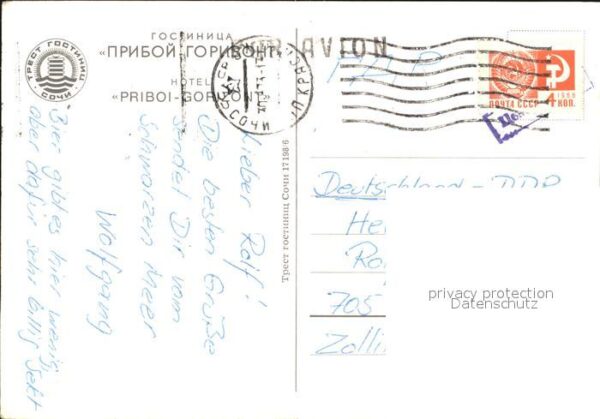 ГОСТИНИЦА
«ПРИБОЙ-ГОРИЗОНТ»
HOTEL
“PRIBOI-GORIZONT”
ТРЕСТ ГОСТИНИЦ
СОЧИ
AVION
СОЧИ
ПОЧТА СССР
1966
4 КОП.
Трест гостиниц Сочи 17198-6
Lieber Rolf!
Die besten Grüße
sendet Dir vom
Schwarzen Meer
Wolfgang
Bier gibt es hier wenig,
aber dafür sehr billig Sekt
Deutschland - DDR
He
Ro
705
Zolli
privacy protection
Datenschutz